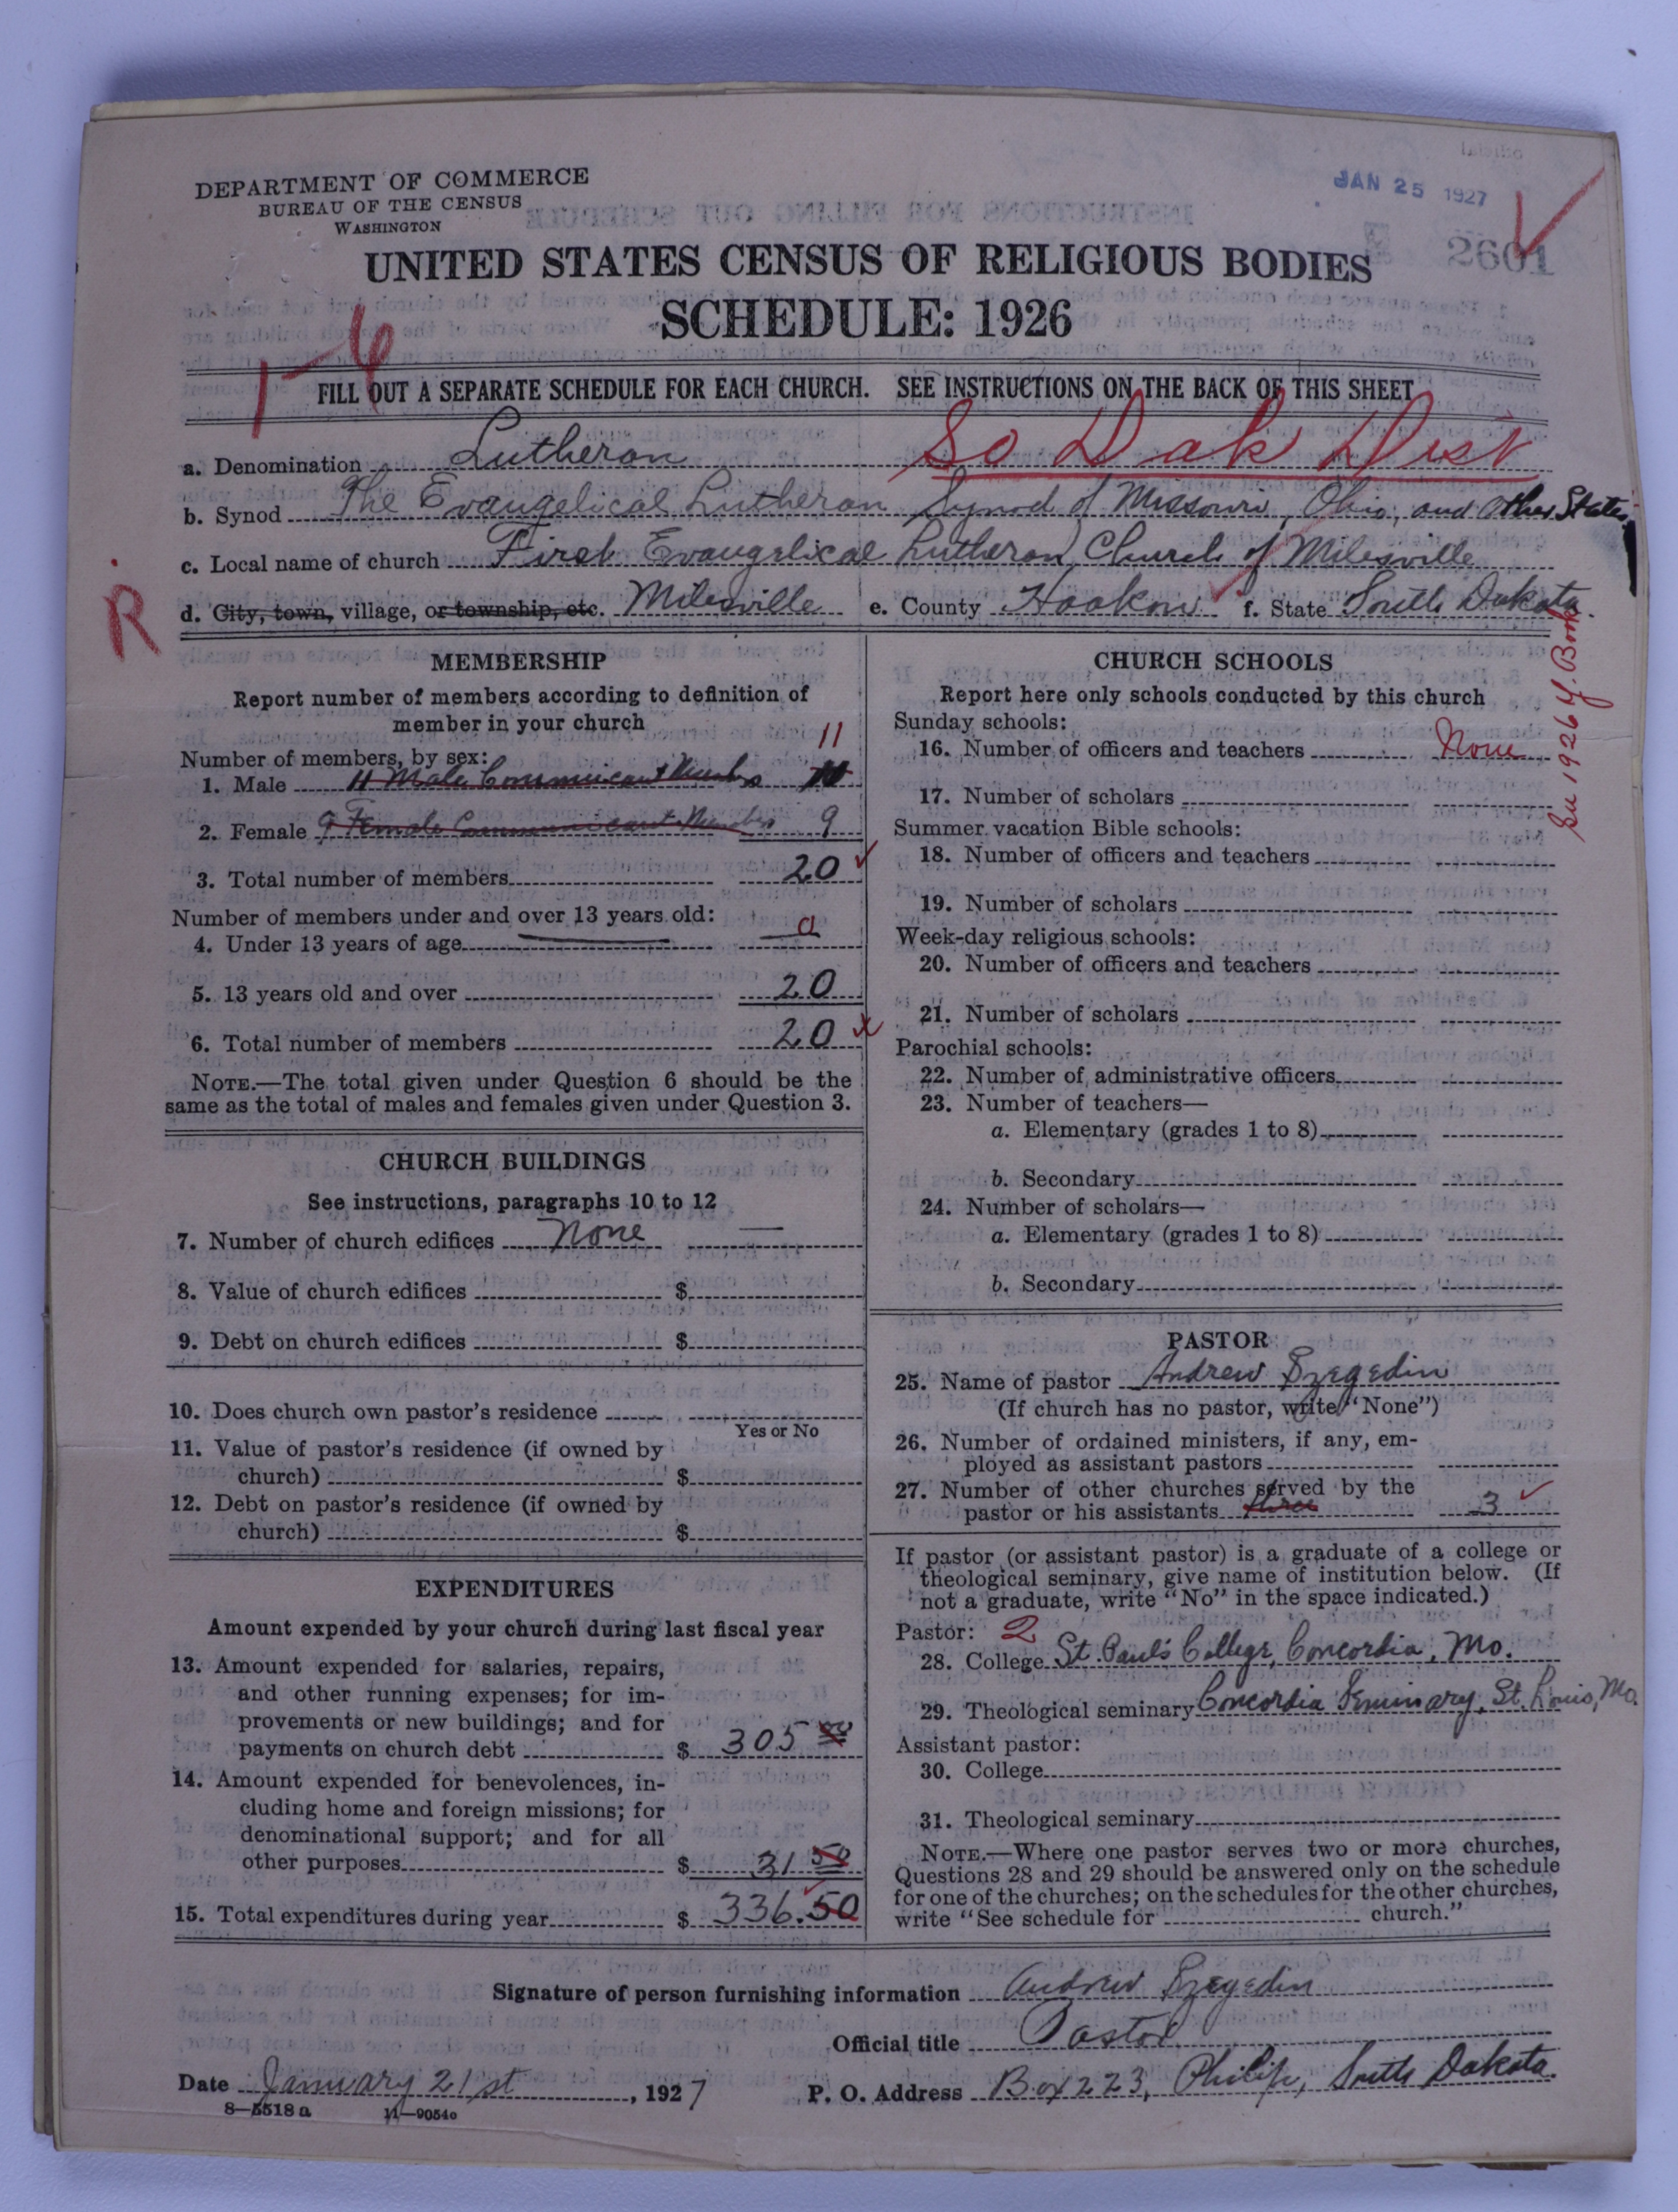 DEPARTMENT OF COMMERCE
BUREAU OF THE CENSUS
WASHINGTON
JAN 25 1927
2601
UNITED STATES CENSUS OF RELIGIOUS BODIES
SCHEDULE: 1926
1-6
FILL OUT A SEPARATE SCHEDULE FOR EACH CHURCH. SEE INSTRUCTIONS ON THE BACK OF THIS SHEET
So Dak Dist
a. Denomination Lutheran
b. Synod The Evangelical Lutheran Synod of Missouri, Ohio, and Other States
c. Local name of church First Evangelical Lutheran Church of Milesville
d. City, town, village, or township, etc. Milesville e. County Haakon f. State South Dakota.
R
MEMBERSHIP
Report number of members according to definition of
member in your church
Number of members, by sex: 11
1. Male 11 Male Communicant Members
2. Female 9 Female Communicant Members 9
3. Total number of members 20
Number of members under and over 13 years old:
4. Under 13 years of age 0
5. 13 years old and over 20
6. Total number of members 20
NOTE.—The total given under Question 6 should be the
same as the total of males and females given under Question 3.
CHURCH BUILDINGS
See instructions, paragraphs 10 to 12
7. Number of church edifices None —
8. Value of church edifices $
9. Debt on church edifices $
10. Does church own pastor's residence
Yes or No
11. Value of pastor's residence (if owned by
church) $
12. Debt on pastor's residence (if owned by
church) $
EXPENDITURES
Amount expended by your church during last fiscal year
13. Amount expended for salaries, repairs,
and other running expenses; for im-
provements or new buildings; and for
payments on church debt $ 305 00
14. Amount expended for benevolences, in-
cluding home and foreign missions; for
denominational support; and for all
other purposes $ 31 50
15. Total expenditures during year $ 336.50
CHURCH SCHOOLS
Report here only schools conducted by this church
Sunday schools:
16. Number of officers and teachers None
17. Number of scholars
Summer vacation Bible schools:
18. Number of officers and teachers
19. Number of scholars
Week-day religious schools:
20. Number of officers and teachers
21. Number of scholars
Parochial schools:
22. Number of administrative officers
23. Number of teachers—
a. Elementary (grades 1 to 8)
b. Secondary
24. Number of scholars—
a. Elementary (grades 1 to 8)
b. Secondary
1926 Y. Book
PASTOR
25. Name of pastor Andrew Szegedin
(If church has no pastor, write "None")
26. Number of ordained ministers, if any, em-
ployed as assistant pastors
27. Number of other churches served by the
pastor or his assistants three 3
If pastor (or assistant pastor) is a graduate of a college or
theological seminary, give name of institution below. (If
not a graduate, write "No" in the space indicated.)
Pastor: 2
28. College St. Paul's College, Concordia, Mo.
29. Theological seminary Concordia Seminary, St. Louis, Mo.
Assistant pastor:
30. College
31. Theological seminary
NOTE.—Where one pastor serves two or more churches,
Questions 28 and 29 should be answered only on the schedule
for one of the churches; on the schedules for the other churches,
write "See schedule for church."
Signature of person furnishing information Andrew Szegedin
Official title Pastor
Date January 21st, 1927 P. O. Address Box 223, Philip, South Dakota.
8—5518 a 11—9054o